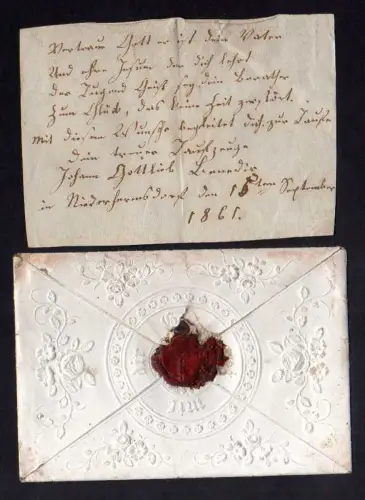 Vertraue Gott er ist dein Vater
Und ehre Jesum der dich lehrt
Der Tugend Geist sey dein Berather
Zum Glück, das keine Zeit zerstört.
Mit diesen Wunsche begleitet dich zur Taufe
dein treuer Taufzeuge
Johann Gottlieb Benedix
in Niederhermsdorf den 15ten September
1861.
mit